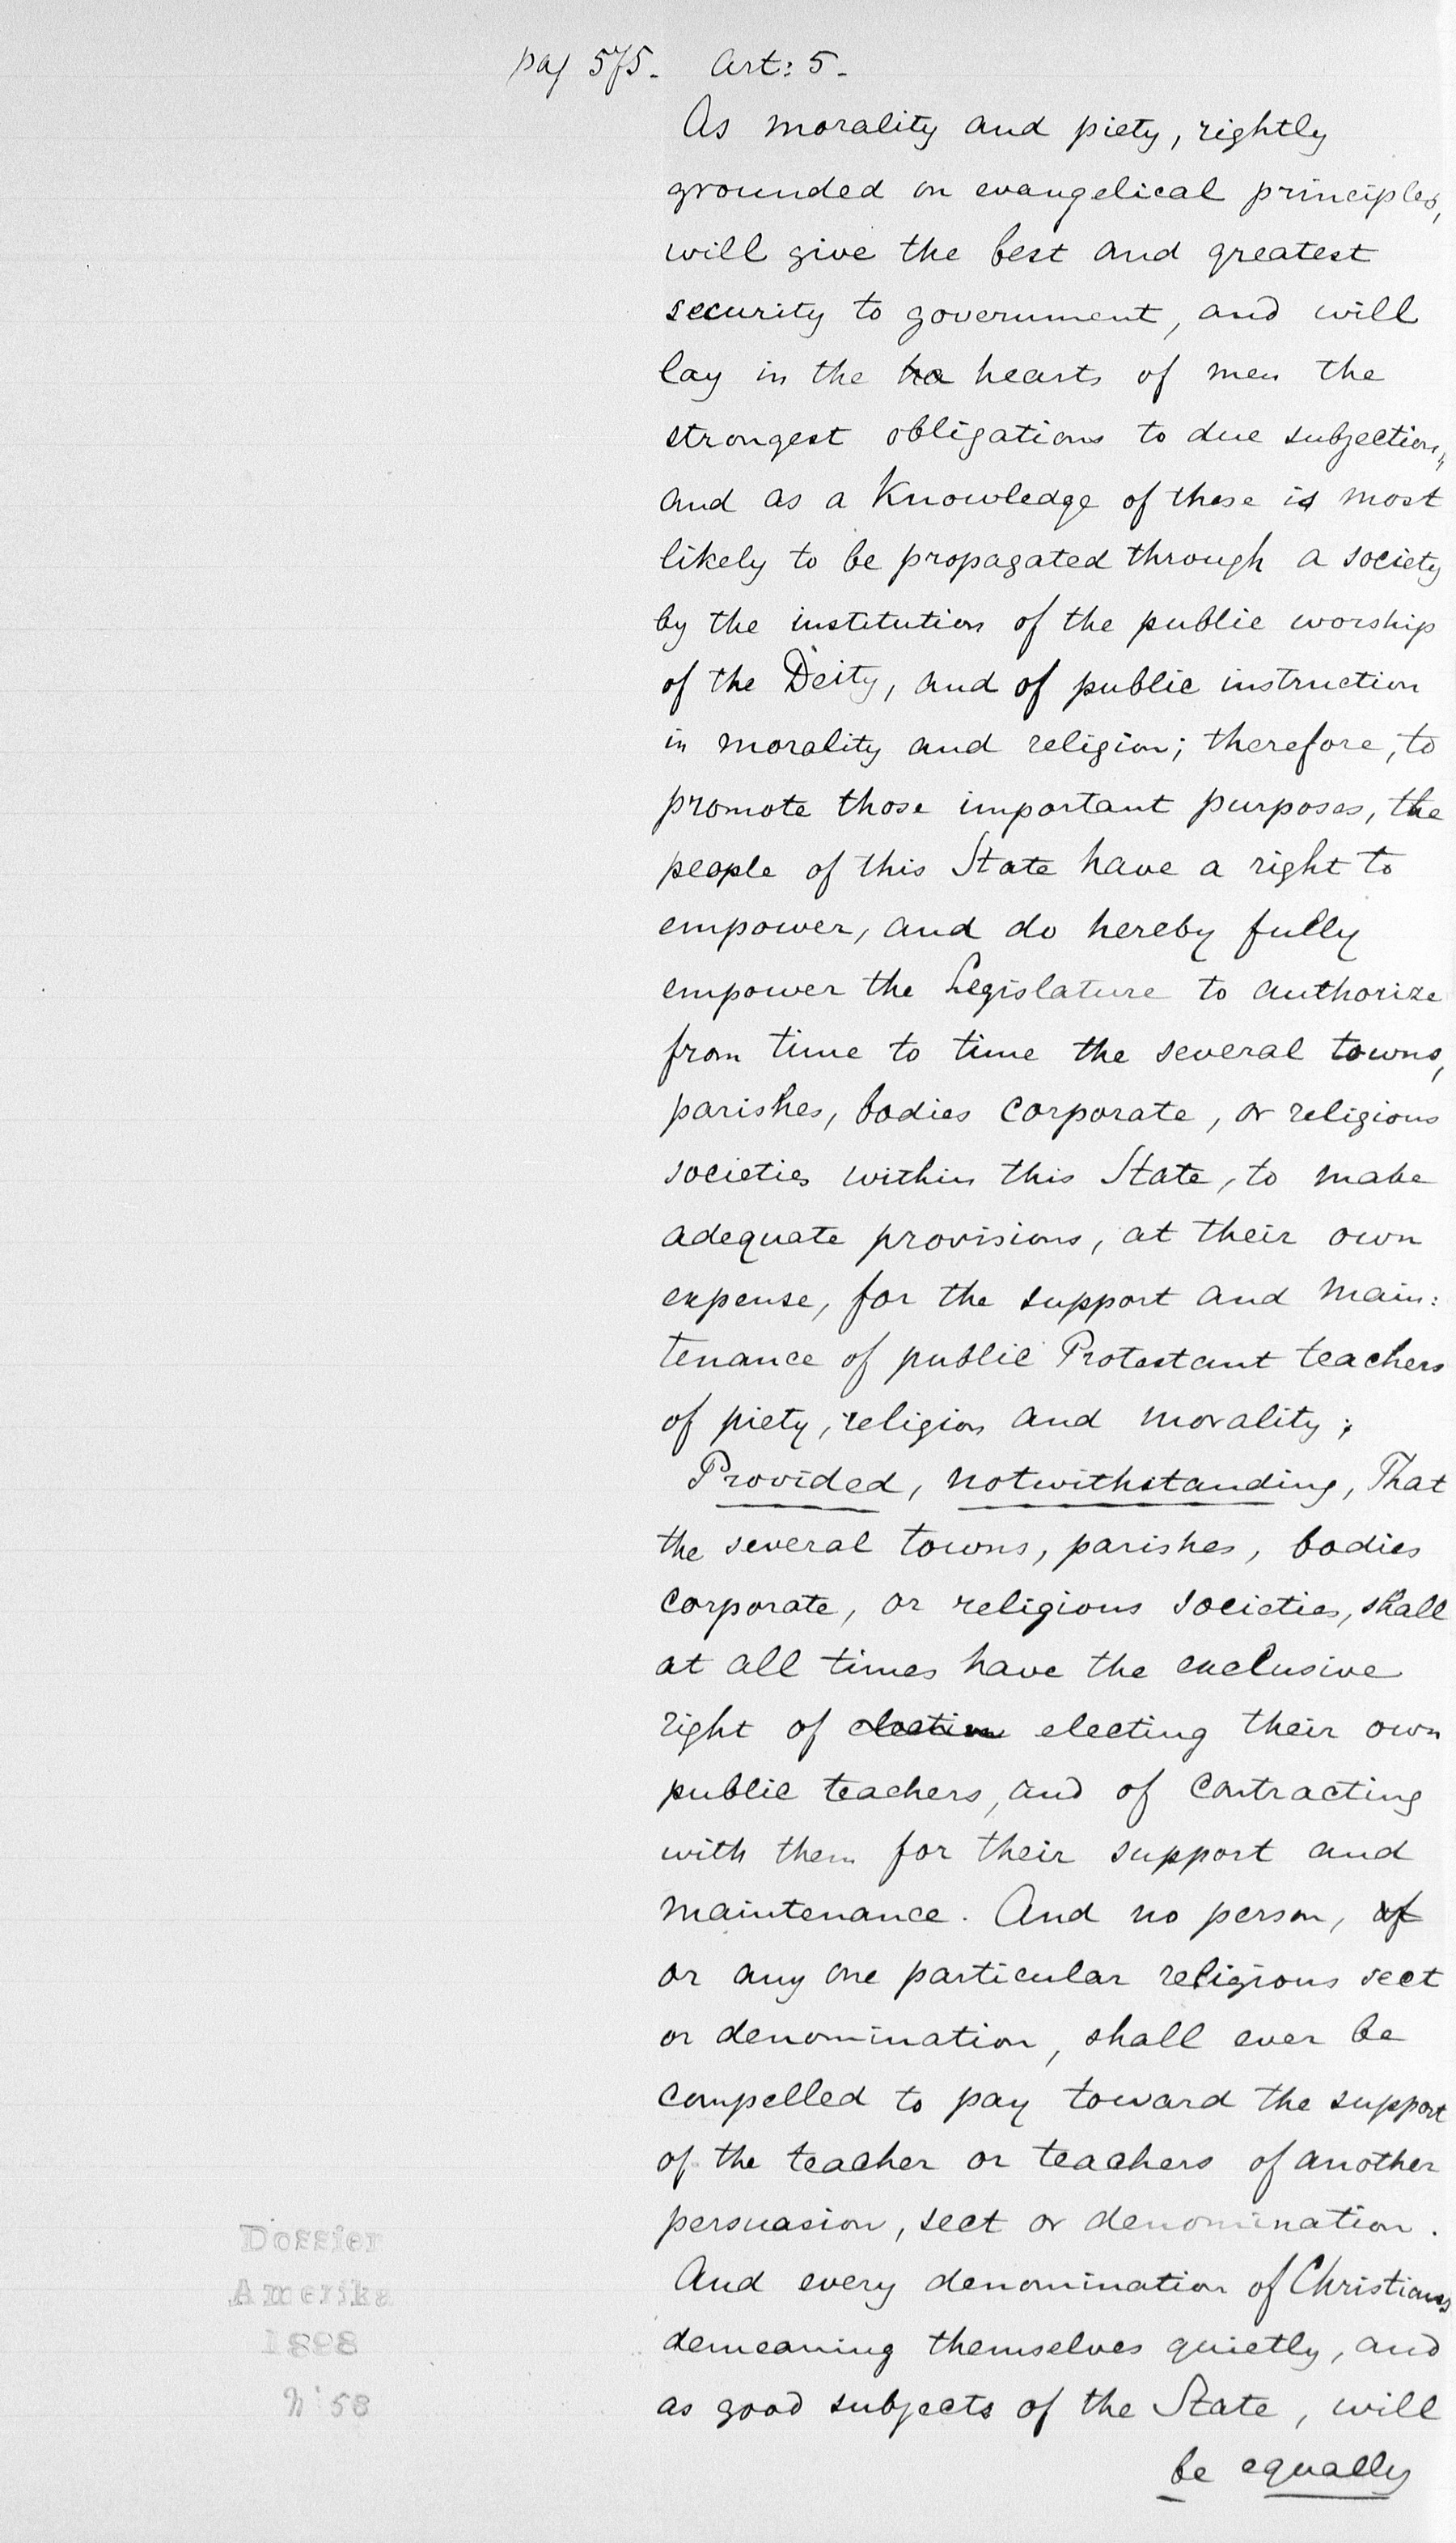 pag 575. Art: 5.
As morality and piety, rightly
grounded on evangelical principles,
will give the best and greatest
security to government, and will
lay in the hea hearts of men the
strongest obligations to due subjection,,
and as a Knowledge of these is most
likely to be propagated through a society
by the institution of the public worship
of the Deity, and of public instruction
in morality and religion; therefore, to
promote those important purposes, the
people of this State have a right to
empower, and do hereby fully
empower the Legislature to authorize
from time to time the several towns,
parishes, bodies corporate, or religious
societies within this State, to make
adequate provisions, at their own
expense, for the support and main:
tenance of public Protestant teachers
of piety, religion and morality;
Provided, notwithstanding, That
the several towns, parishes, bodies
corporate, or religious societies, shall
at all times have the exclusive
right of election electing their own
public teachers, and of contracting
with them for their support and
maintenance. And no person, of
or any one particular religious sect
or denomination, shall ever be
compelled to pay toward the support
of the teacher or teachers of another
persuasion, sect or denomination.
And every denomination of Christians
demeaning themselves quietly, and
as good subjects of the State, will
be equally
Dossier
Amerika
1898
N: 58